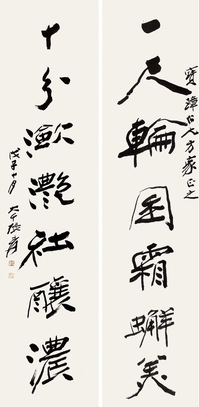 寶潭仁兄方家正之
一尺輪囷霜蠏美
十分瀲灩社釀濃
戊子十月 大千張爰